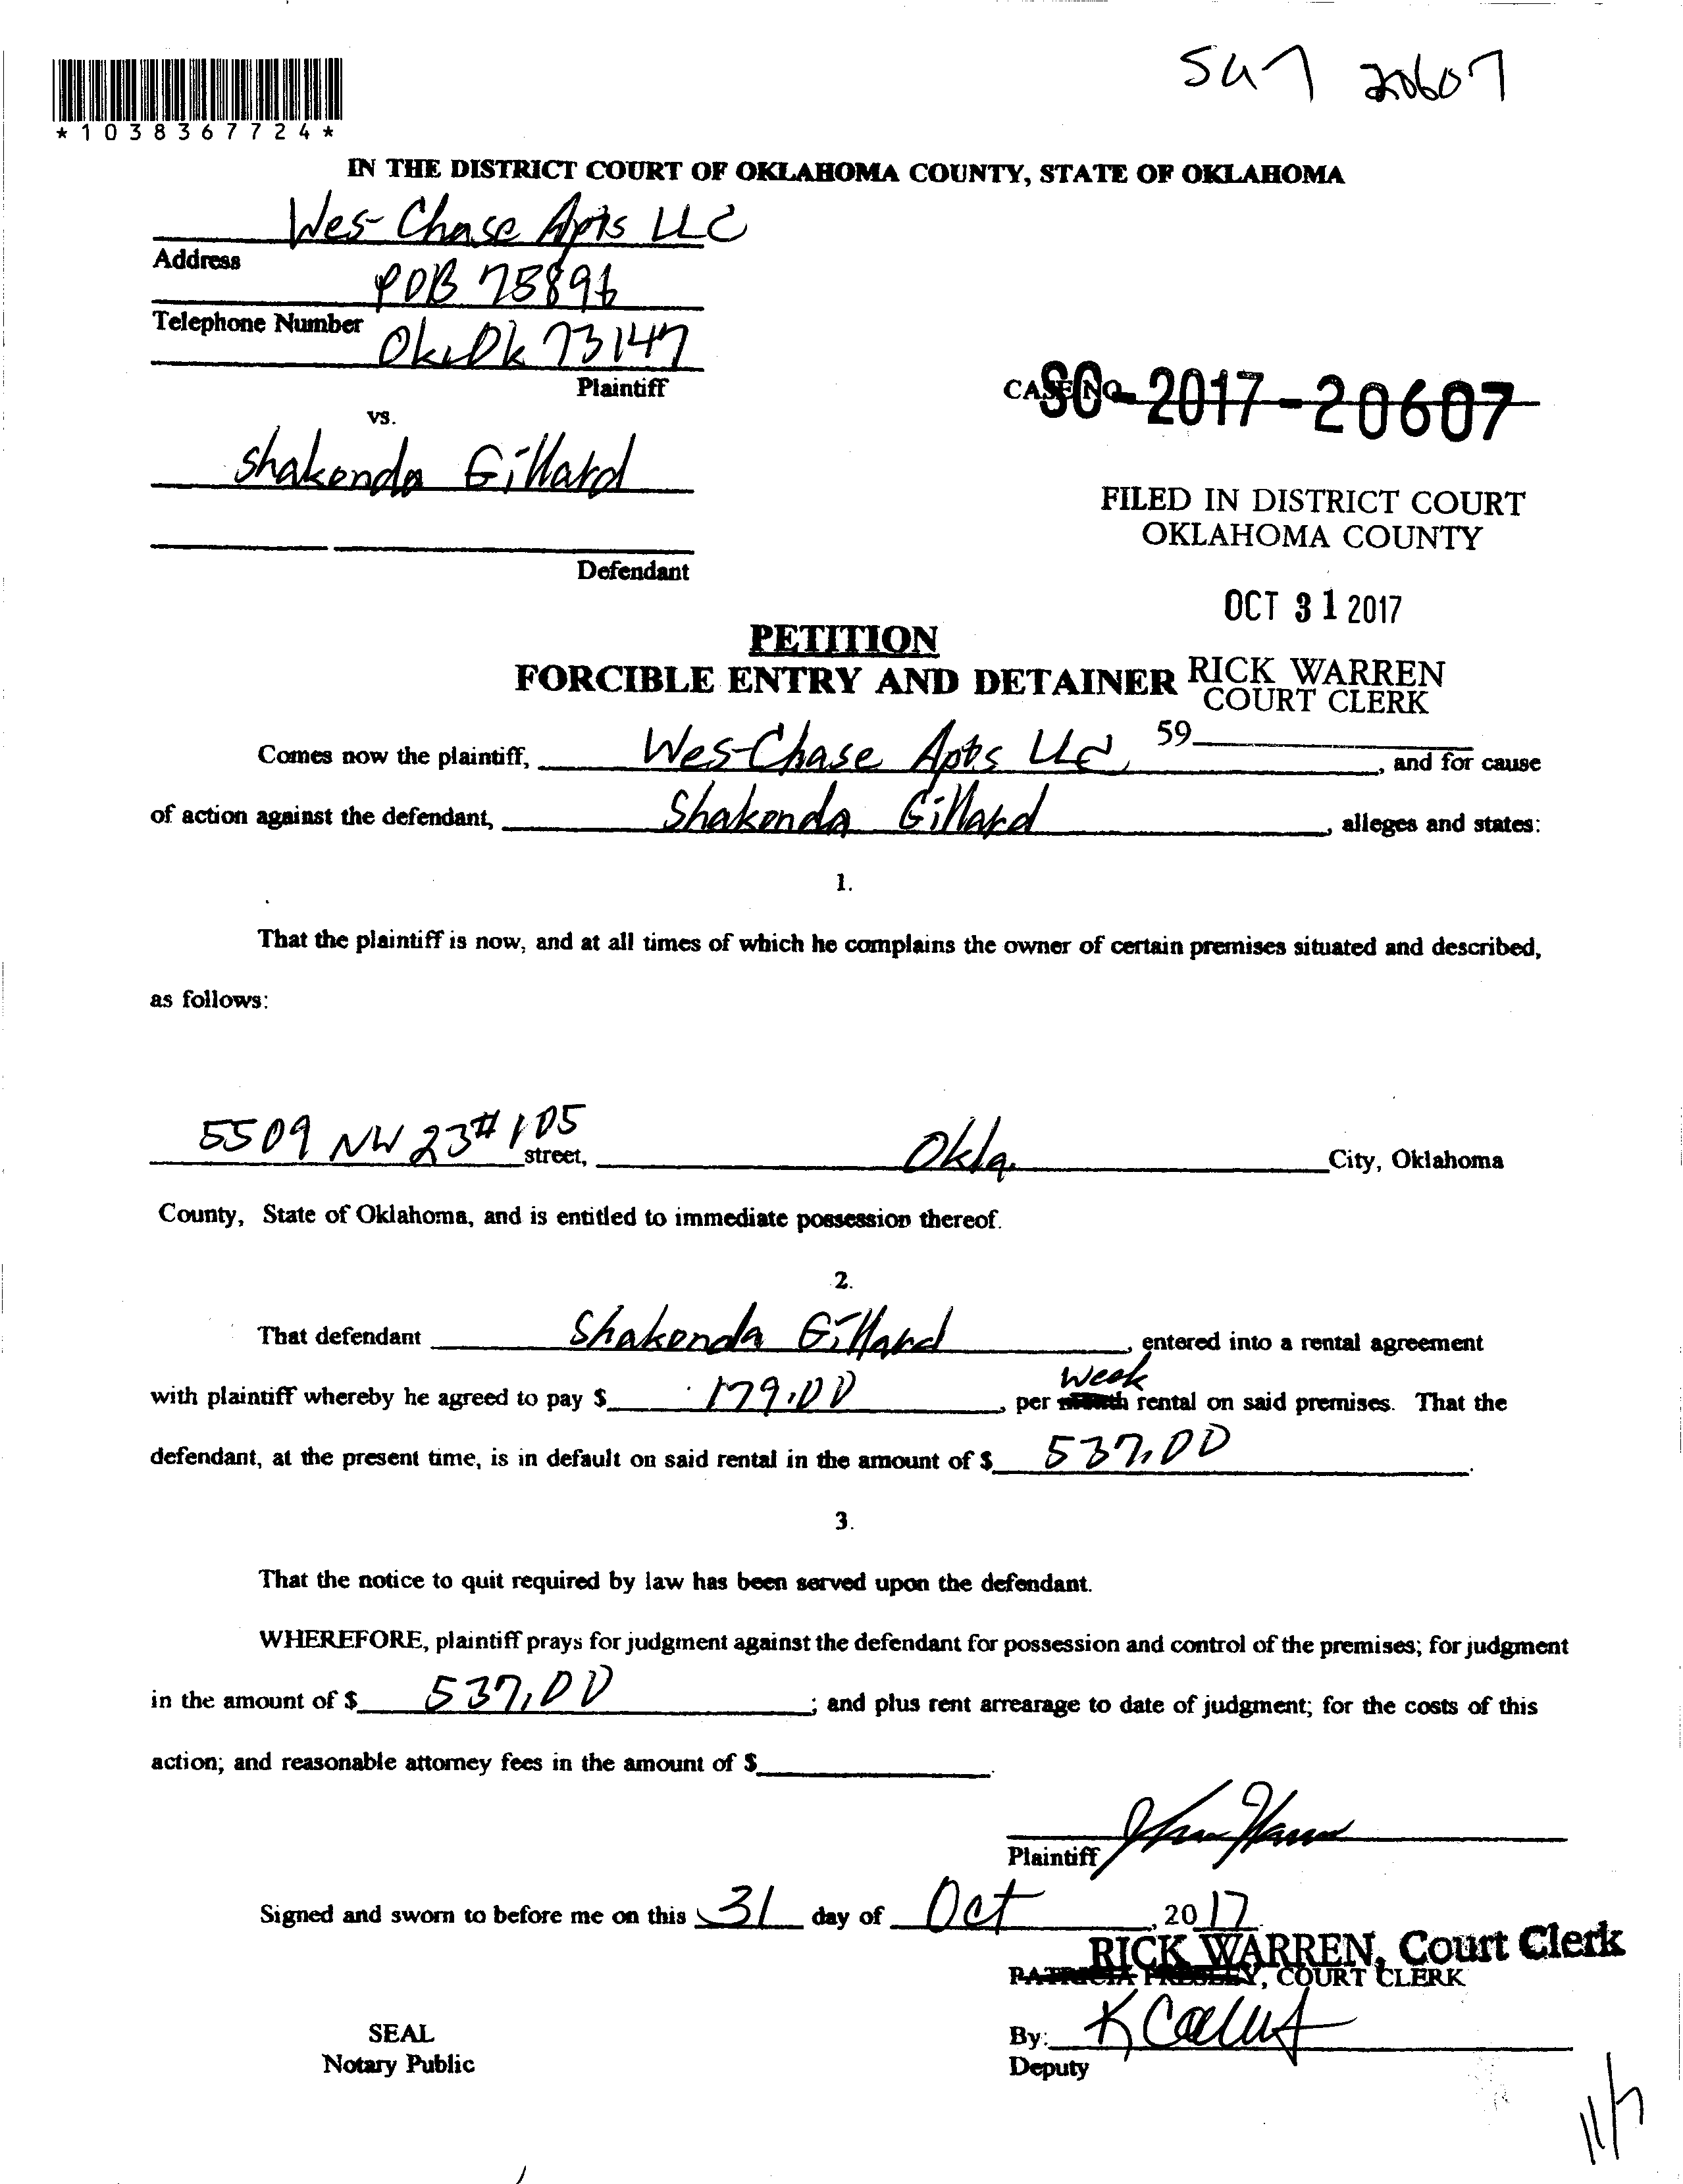 *1038367724*
IN THE DISTRICT COURT OF OKLAHOMA COUNTY, STATE OF OKLAHOMA
Wes-Chase Apts LLC
Address
POB 75896
Telephone Number
Ok. Ok 73147
Plaintiff
vs.
CASE NO. SC-2017-20607
Shakonda Gillard
Defendant
FILED IN DISTRICT COURT
OKLAHOMA COUNTY
OCT 31 2017
PETITION
FORCIBLE ENTRY AND DETAINER
RICK WARREN
COURT CLERK
59
Comes now the plaintiff, Wes-Chase Apts LLC, and for cause
of action against the defendant, Shakonda Gillard, alleges and states:
1.
That the plaintiff is now, and at all times of which he complains the owner of certain premises situated and described,
as follows:
5509 NW 23 #105 street, Okla. City, Oklahoma
County, State of Oklahoma, and is entitled to immediate possession thereof.
2.
That defendant Shakonda Gillard, entered into a rental agreement
with plaintiff whereby he agreed to pay $ 179.00, per month Week rental on said premises. That the
defendant, at the present time, is in default on said rental in the amount of $ 537.00.
3.
That the notice to quit required by law has been served upon the defendant.
WHEREFORE, plaintiff prays for judgment against the defendant for possession and control of the premises; for judgment
in the amount of $ 537.00; and plus rent arrearage to date of judgment; for the costs of this
action; and reasonable attorney fees in the amount of $.
Plaintiff
Signed and sworn to before me on this 31 day of Oct, 2017
RICK WARREN, Court Clerk
PATRICIA PRESLEY, COURT CLERK
SEAL
By:
Notary Public
Deputy